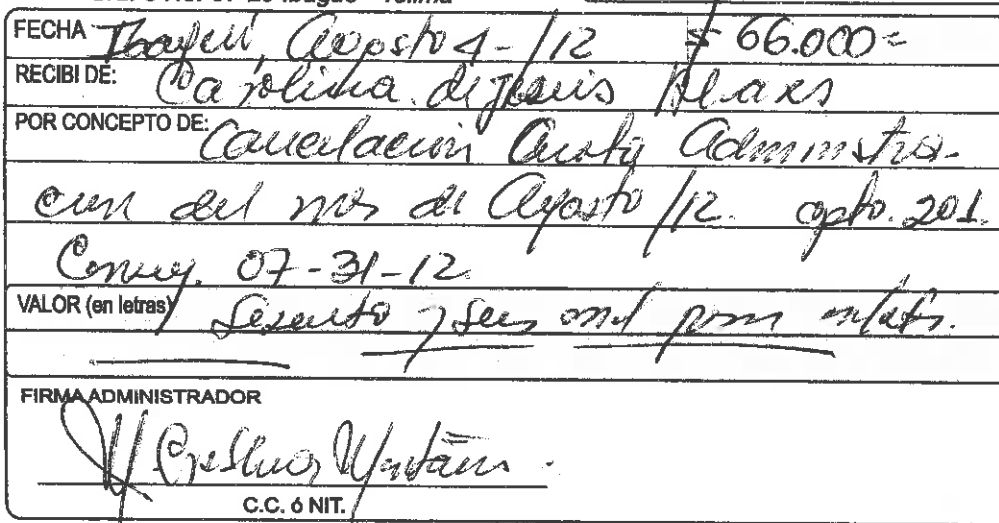 Ibagué
Tolima
FECHA Ibagué, Agosto 4-/12 $ 66.000=
RECIBI DE: Carolina de Jesus
POR CONCEPTO DE: Cancelación Cuota Administra-
cion del mes de Agosto /12. apto. 201.
07-31-12
VALOR (en letras) Sesenta y seis mil pesos m/cte.
FIRMA ADMINISTRADOR
C.C. ó NIT.